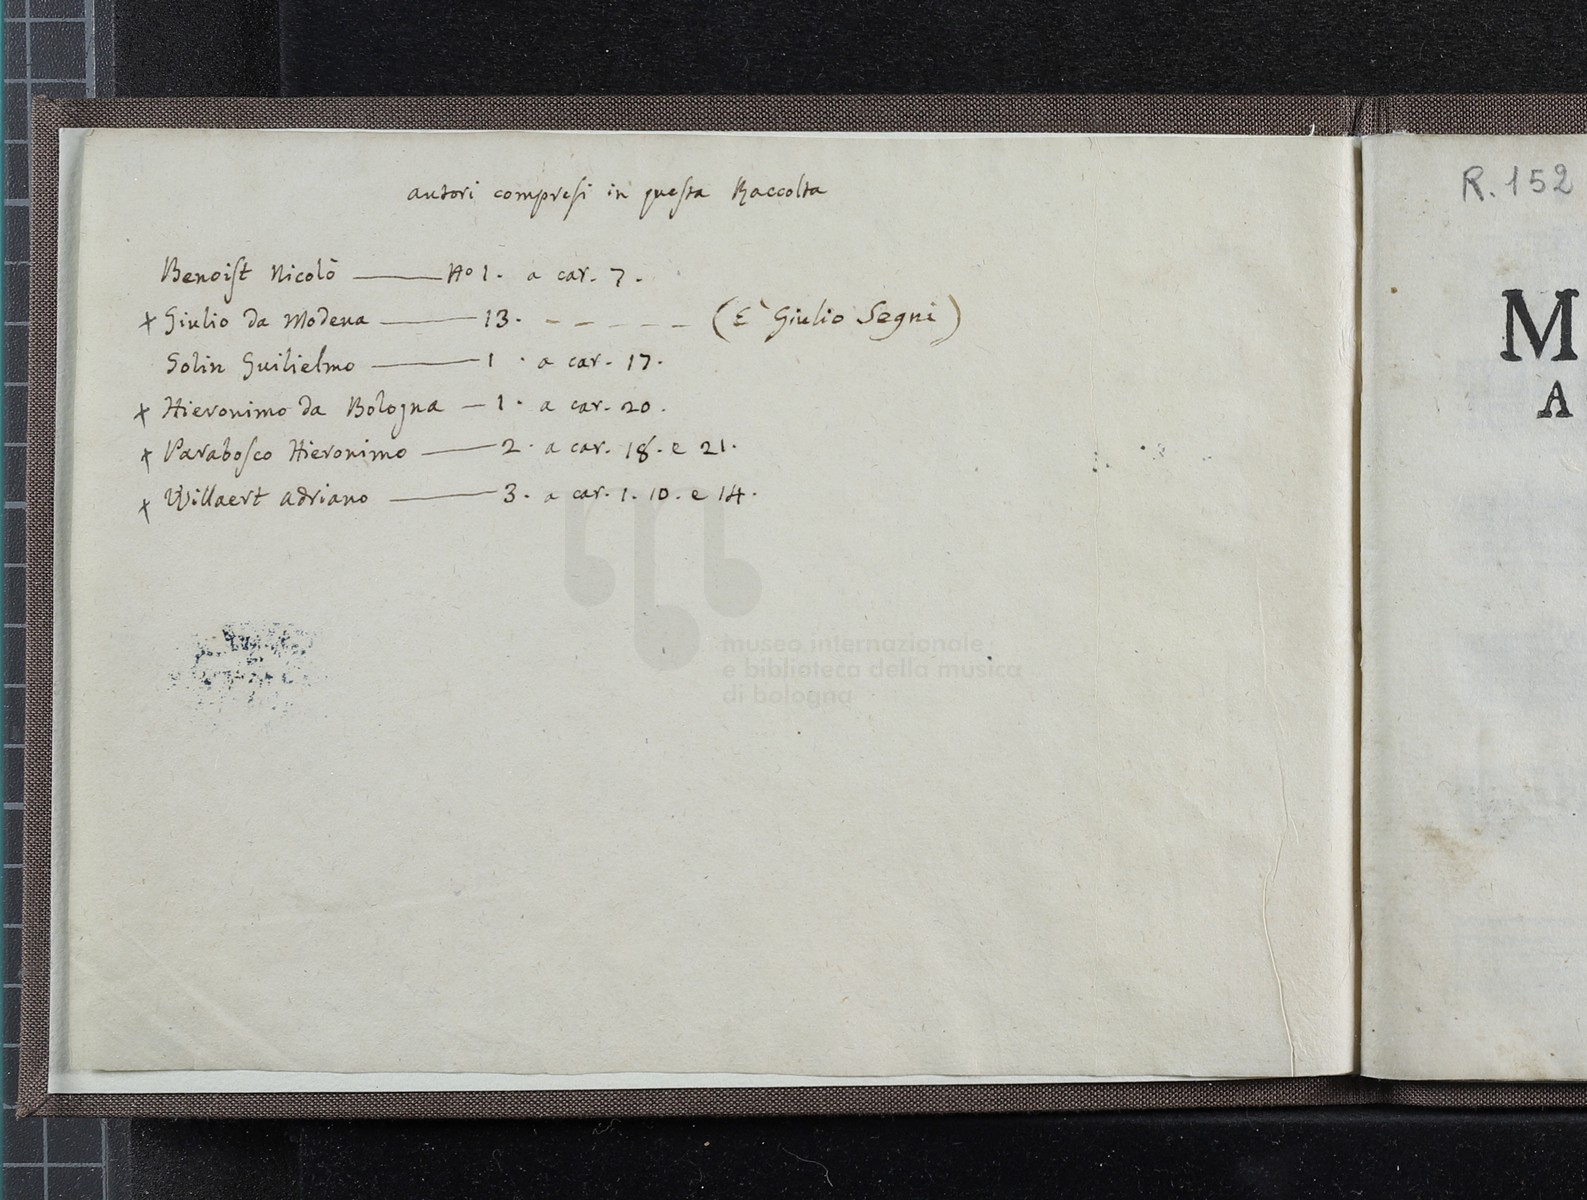 autori compresi in questa Raccolta
Benoist Nicolò ——— No 1. a car. 7.
+ Giulio da Modena ——— 13. - - - - - (E` Giulio Segni)
Golin Guilielmo ——— 1. a car. 17.
+ Hieronimo da Bologna — 1. a car. 20.
+ Parabosco Hieronimo ——— 2. a car. 18. e 21.
+ Willaert adriano ——— 3. a car. 1. 10. e 14.
museo internazionale
e biblioteca della musica
di bologna
R. 152
M
A